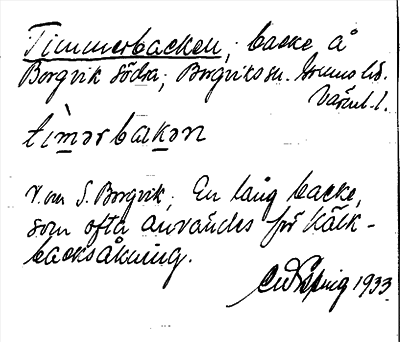 Timmerbacken, backe å
Borgvik södra, Borgviks sn. Grums hd.
Värml. l.
tìmərbakən
V. om S. Borgvik. En lång backe,
som ofta användes för kälk-
backsåkning.
1933.